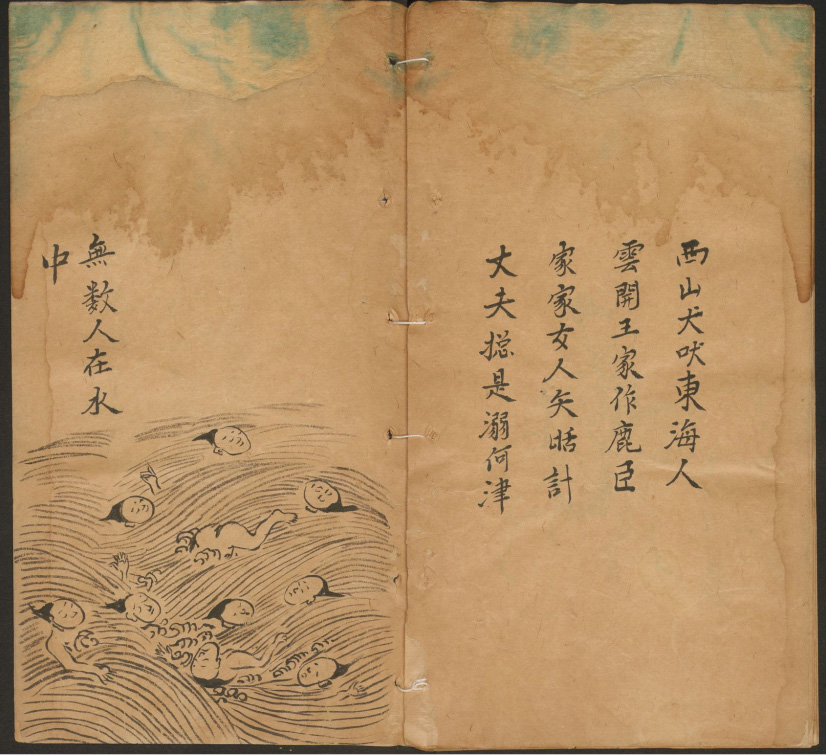 西山犬吠東海人
雲開王家作鹿臣
家家女人矢𣆶計
丈夫摠是溺何津
無数人在水
中